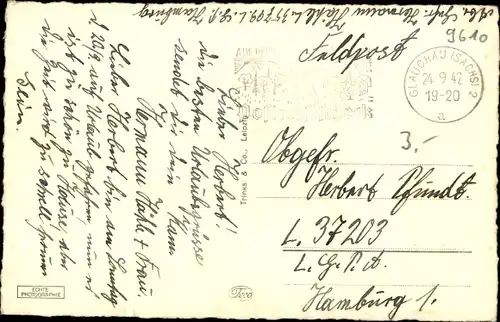 Abs. Gefr. Hermann Hähle L. 35709 L.G.P.A. Hamburg
9610
Feldpost
GLAUCHAU (SACHS) 2
24.9.42
19-20
a
3,-
Lieber Herbert!
Die besten Urlaubsgrüsse
sendet dir dein Kam.
Hermann Hähle + Frau.
Lieber Herbert bin am Samstag
d. 20/9 auf Urlaub gefahren nun es
ist ja schön zu Hause aber
die Zeit wird zu schnell herum
sein.
Trinks & Co., Leipzig
Obgefr.
Herbert Pfundt.
L. 37203
L. G. P. A.
Hamburg 1.
ECHTE
PHOTOGRAPHIE
Teco